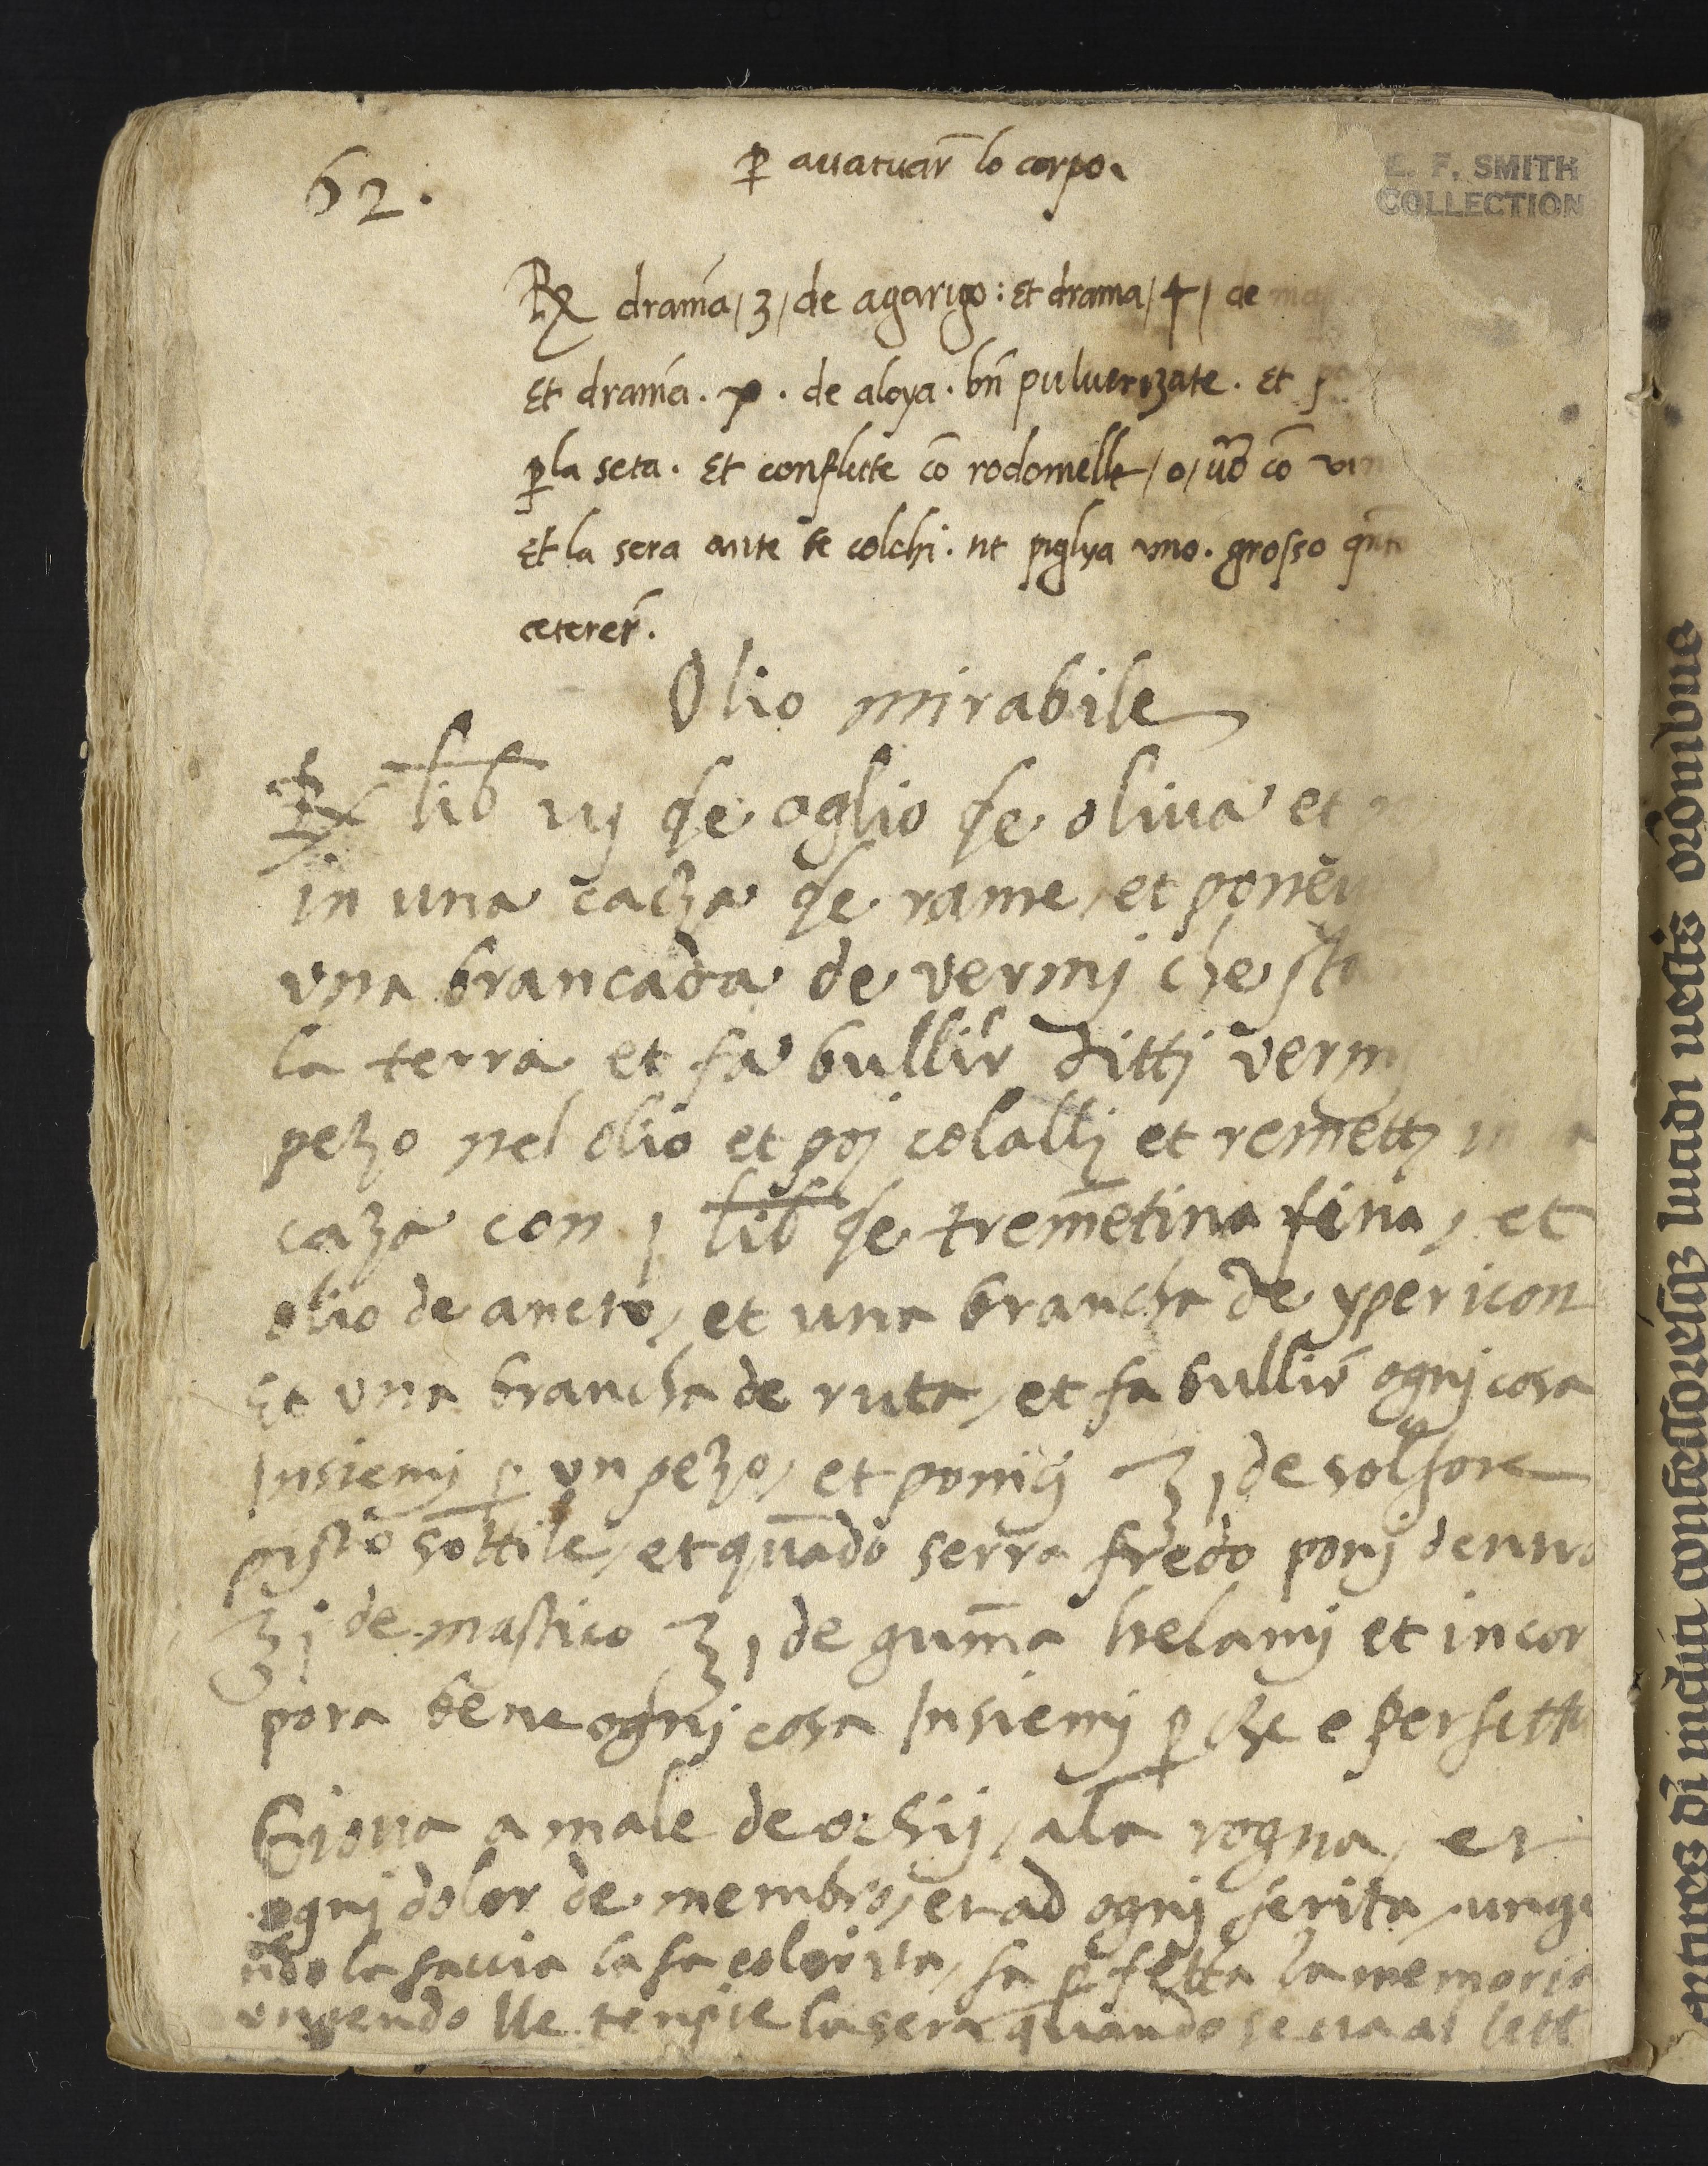 62.
ꝑ auacuar̄ lo corpo
E. F. SMITH
COLLECTION
℞ drama/3/de agarigo: et drama/4/ de
et drama. x. de aloya. bn̄ puluerizate. et
ꝑ la seta. et conflicte cō rodomelle/o/ uō cō
et la sera ante te colchi. ne piglya uno. grosso
cecerer̄.
Olio mirabile
℞ lib vij de oglio de oliua et
in una cacza de rame, et
una brancada de vermj che
la terra et fa bullir ditti vermj
pezo nel olio et poj colallj et remettj
caza con j lib de tremētina fina, et
olio de aneto, et una brancha de ypericon
Et una brancha de ruta, et fa bullir ognj cosa
Insiemj ꝑ un pezo, et ponicj ℥ j de solfore
pisto sottile, et quādo serra fredo ponj dentro
℥ j de mastico ℥ j de gum̄a helamj et incor
pora bene ognj cosa Insiemj ꝑ che e perfetto
Gioua a male de ochij, ala rogna, et
ognj dolor de membro, et ad ognj ferita, unge
ndo la faccia la fa colorita, fa ꝑfetta la memoria
ungendo lle tempie la sera quando se ua al lett